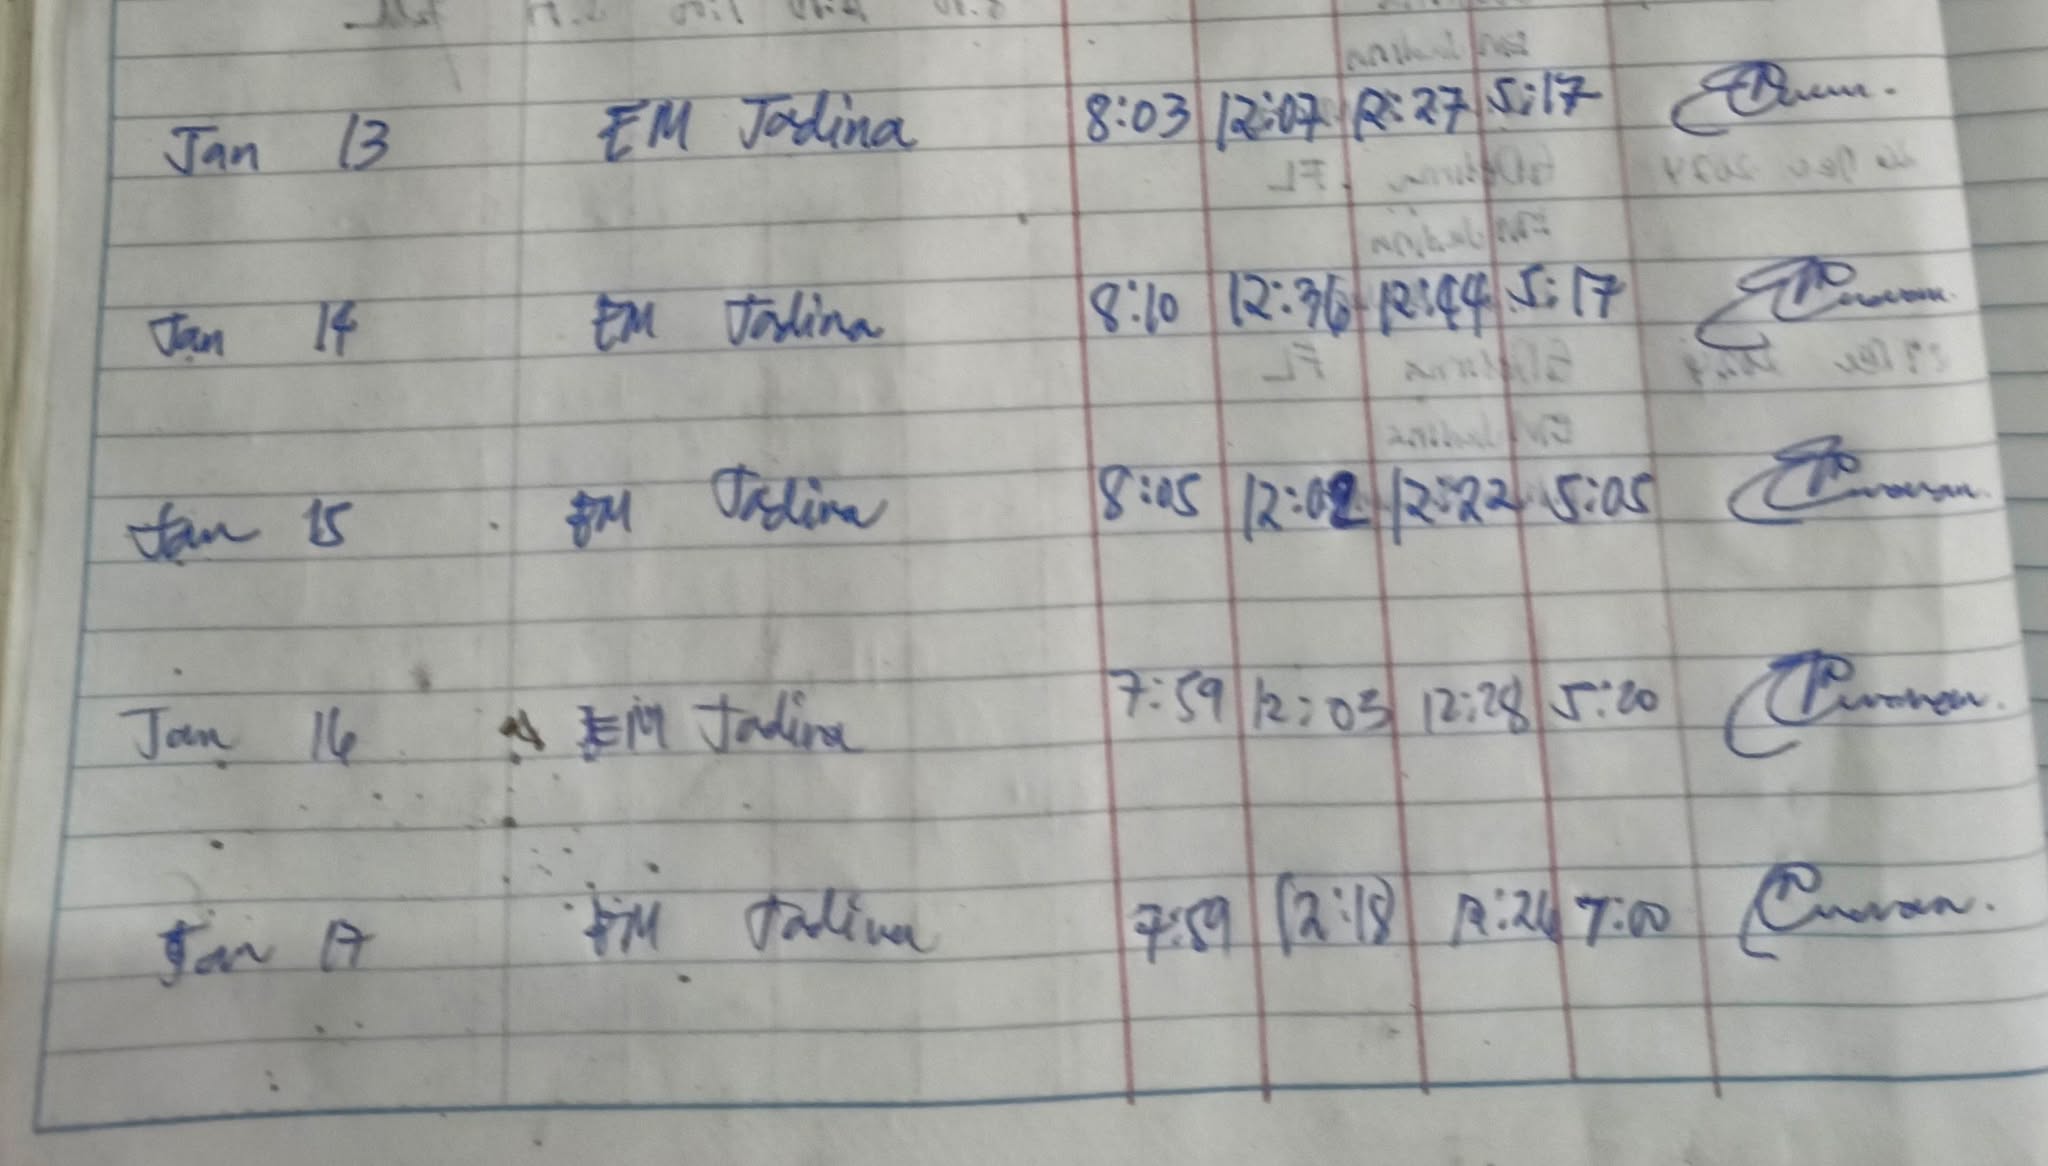 Jan 13 EM Jadina 8:03 12:07 12:27 5:17
Jan 14 EM Jadina 8:10 12:36 12:44 5:17
Jan 15 EM Jadina 8:05 12:02 12:22 5:05
Jan 16 EM Jadina 7:59 12:03 12:28 5:20
Jan 17 EM Jadina 7:59 12:18 12:26 7:00